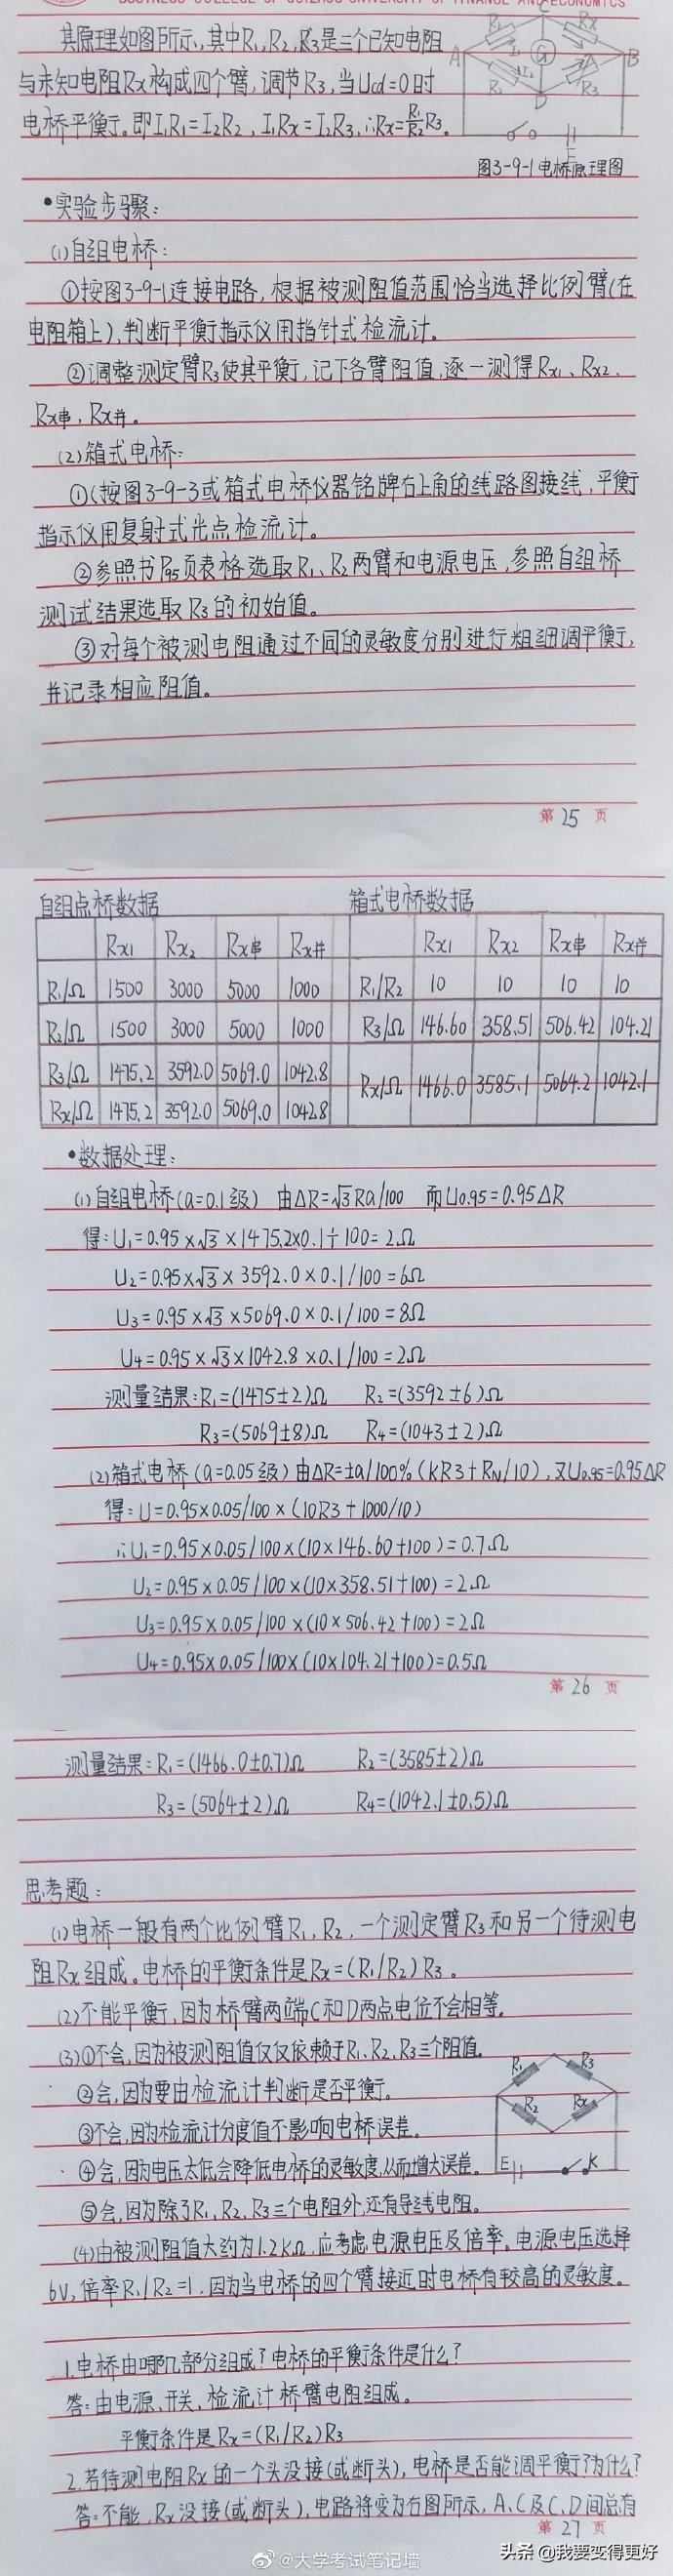 BUSINESS COLLEGE OF GUIZHOU UNIVERSITY OF FINANCE AND ECONOMICS
其原理如图所示,其中R1,R2,R3是三个已知电阻
与未知电阻Rx构成四个臂,调节R3,当Ucd=0时
电桥平衡。即I1R1=I2R2,I1Rx=I2R3,∴Rx=R1/R2 R3。
R1 C Rx
A I1 G B
R2 I2 D R3
E
图3-9-1电桥原理图
•实验步骤:
(1)自组电桥:
①按图3-9-1连接电路,根据被测阻值范围恰当选择比例臂(在
电阻箱上),判断平衡指示仪用指针式检流计。
②调整测定臂R3使其平衡,记下各臂阻值,逐一测得Rx1、Rx2、
Rx串,Rx并。
(2)箱式电桥:
①(按图3-9-3或箱式电桥仪器铭牌右上角的线路图接线,平衡
指示仪用复射式光点检流计。
②参照书P95页表格选取R1、R2两臂和电源电压,参照自组桥
测试结果选取R3的初始值。
③对每个被测电阻通过不同的灵敏度分别进行粗细调平衡,
并记录相应阻值。
第25页
自组点桥数据 箱式电桥数据
Rx1 Rx2 Rx串 Rx并 Rx1 Rx2 Rx串 Rx并
R1/Ω 1500 3000 5000 1000 R1/R2 10 10 10 10
R2/Ω 1500 3000 5000 1000 R3/Ω 146.60 358.51 506.42 104.21
R3/Ω 1475.2 3592.0 5069.0 1042.8 Rx/Ω 1466.0 3585.1 5064.2 1042.1
Rx/Ω 1475.2 3592.0 5069.0 1042.8
•数据处理:
(1)自组电桥(a=0.1级) 由ΔR=√3Ra/100 而U0.95=0.95ΔR
得:U1=0.95×√3×1475.2×0.1÷100=2Ω
U2=0.95×√3×3592.0×0.1/100=6Ω
U3=0.95×√3×5069.0×0.1/100=8Ω
U4=0.95×√3×1042.8×0.1/100=2Ω
测量结果:R1=(1475±2)Ω R2=(3592±6)Ω
R3=(5069±8)Ω R4=(1043±2)Ω
(2)箱式电桥(a=0.05级)由ΔR=±a/100%(KR3+RN/10),又U0.95=0.95ΔR
得:U=0.95×0.05/100×(10R3+1000/10)
∴U1=0.95×0.05/100×(10×146.60+100)=0.7Ω
U2=0.95×0.05/100×(10×358.51+100)=2Ω
U3=0.95×0.05/100×(10×506.42+100)=2Ω
U4=0.95×0.05/100×(10×104.21+100)=0.5Ω
第26页
测量结果:R1=(1466.0±0.7)Ω R2=(3585±2)Ω
R3=(5064±2)Ω R4=(1042.1±0.5)Ω
思考题:
(1)电桥一般有两个比例臂R1、R2,一个测定臂R3和另一个待测电
阻Rx组成。电桥的平衡条件是Rx=(R1/R2)R3。
(2)不能平衡,因为桥臂两端C和D两点电位不会相等。
(3)①不会,因为被测阻值仅仅依赖于R1、R2、R3三个阻值。
②会,因为要由检流计判断是否平衡。
③不会,因为检流计分度值不影响电桥误差。
④会,因为电压太低会降低电桥的灵敏度,从而增大误差。
⑤会,因为除了R1、R2、R3三个电阻外,还有导线电阻。
R1 R3
R2 Rx
E K
(4)由被测阻值大约为1.2KΩ,应考虑电源电压及倍率。电源电压选择
6V,倍率R1/R2=1,因为当电桥的四个臂接近时电桥有较高的灵敏度。
1.电桥由哪几部分组成?电桥的平衡条件是什么?
答:由电源、开关、检流计桥臂电阻组成。
平衡条件是Rx=(R1/R2)R3
2.若待测电阻Rx的一个头没接(或断头),电桥是否能调平衡?为什么?
答:不能,Rx没接(或断头),电路将变为右图所示,A、C及C、D间总有
第27页
@大学考试笔记墙
头条 @我要变得更好